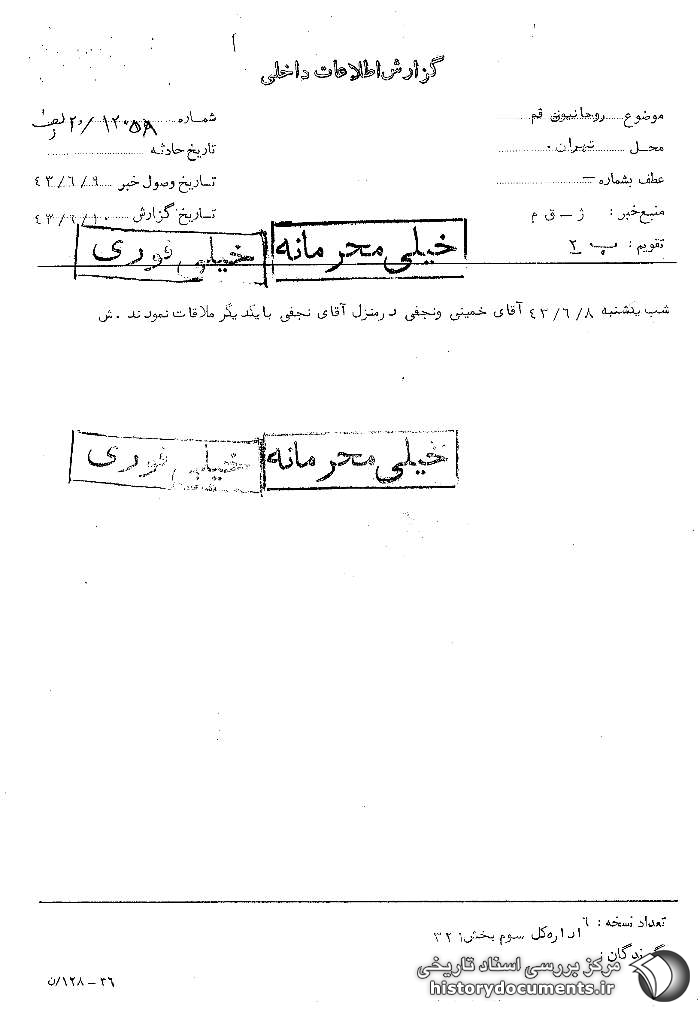 گزارش اطلاعات داخلی
موضوع روحانیون قم
شماره ۲۰/۱۲۰۵۸
محل تهران.
تاریخ حادثه
عطف بشماره —
تاریخ وصول خبر ۴۳/۶/۹
منبع خبر: ژ – ق م
تاریخ گزارش ۴۳/۶/۱۰
تقویم: ب ۲
خیلی محرمانه
خیلی فوری
شب یکشنبه ۴۳/۶/۸ آقای خمینی ونجفی درمنزل آقای نجفی بایکدیگر ملاقات نمودند . ش
خیلی محرمانه
خیلی فوری
تعداد نسخه: ۶
اداره کل سوم بخش: ۳۲
گیرندگان:
۳۶ – ۱۲۸/ن
مرکز بررسی اسناد تاریخی
historydocuments.ir